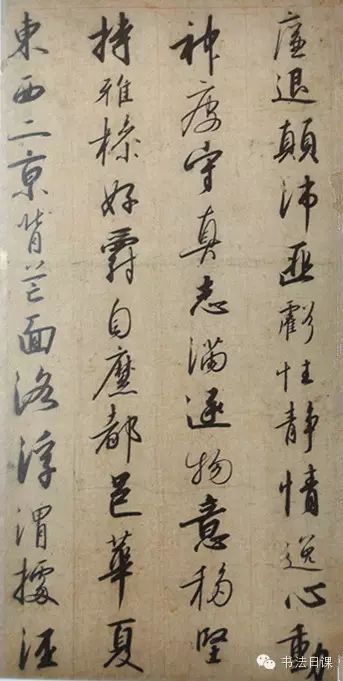 廉退顛沛匪虧性静情逸心動
神疲守真志滿逐物意移堅
持雅操好爵自縻都邑華夏
東西二京背芒面洛浮渭據涇
书法日课